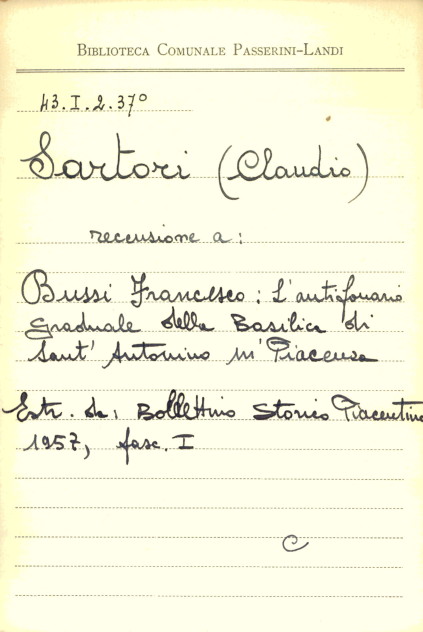 BIBLIOTECA COMUNALE PASSERINI-LANDI
43.I.2.37°
Sartori (Claudio)
recensione a:
Bussi Francesco: L'antifonario
graduale della Basilica di
Sant' Antonino in Piacenza
Estr. da: Bollettino Storico Piacentino
1957, fasc. I
C